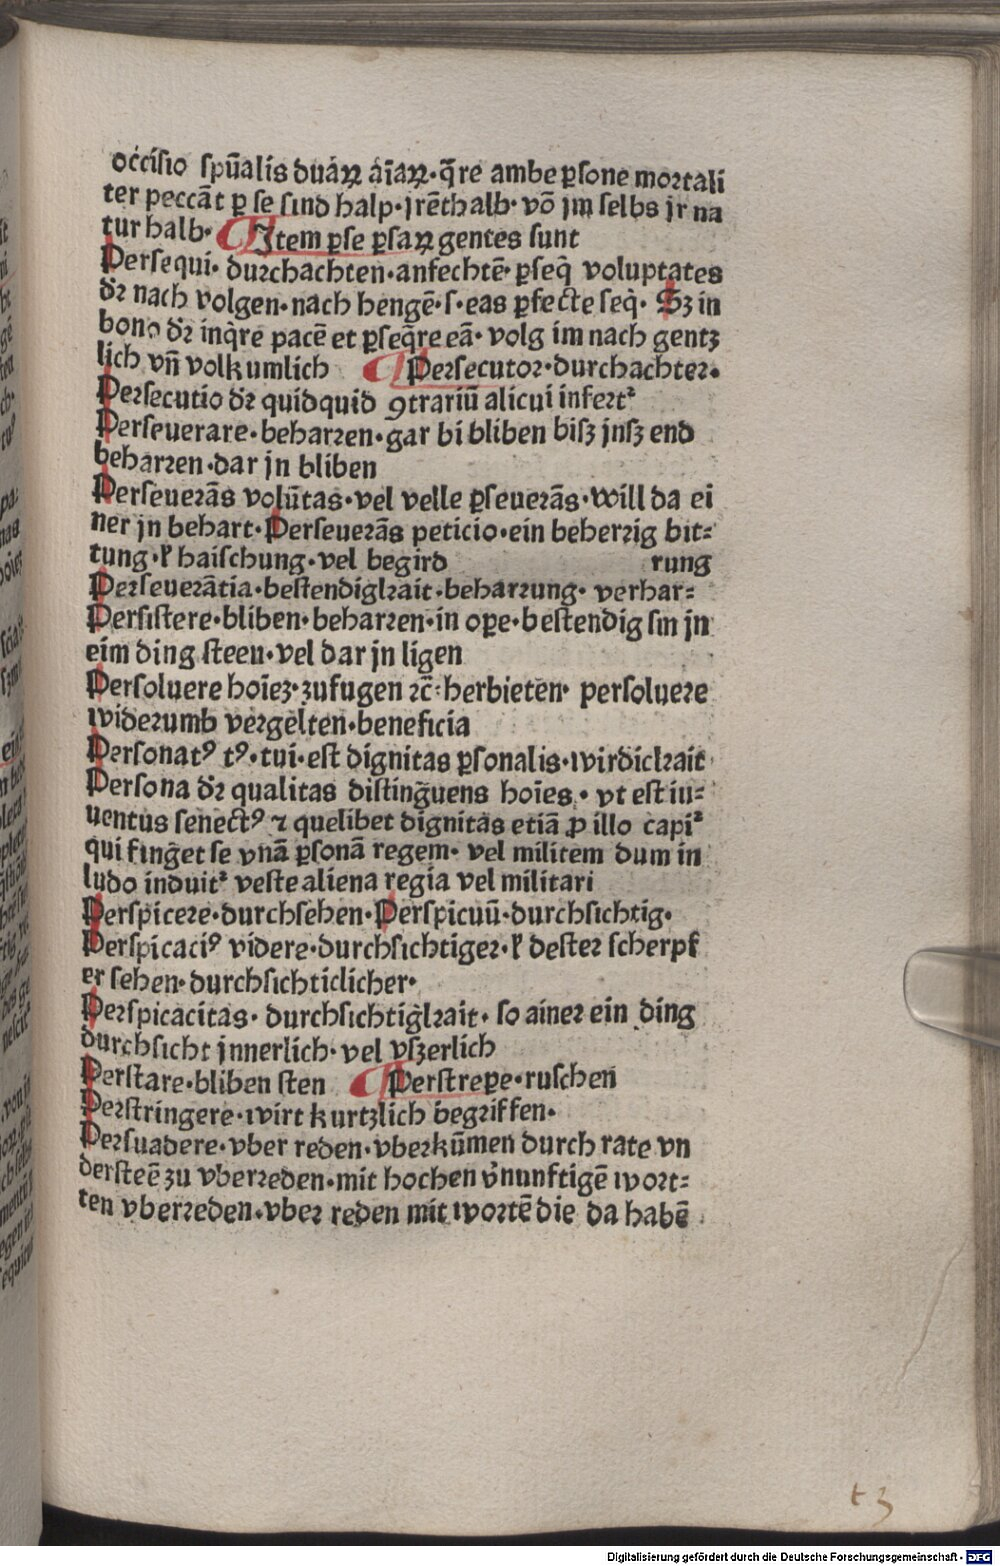 occisio spūalis duaꝝ aīaꝝ·q̄re ambe ꝑsone mortali
ter peccāt ꝑ se sind halp·jrēthalb·vō jm selbs jr na
tur halb· ¶ Item ꝑse ꝑsaꝝ gentes sunt
Persequi·durchachten·anfechtē·ꝑseq̄ voluptates
dr̄ nach volgen·nach hengē·s·eas ꝑfecte seq̄·Sꝫ in
bono dr̄ inq̄re pacē et ꝑseq̄re eā·volg im nach gentz
lich vn̄ volkumlich ¶ Persecutor·durchachter·
Persecutio dr̄ quidquid ꝯtrariū alicui infertᷣ
Perseuerare·beharren·gar bi bliben bisz jnsz end
beharren·dar jn bliben
Perseuerās volūtas·vel velle ꝑseuerās·will da ei
ner jn behart·Perseuerās peticio·ein beherzig bit⸗
tung·ł haischung·vel begird rung
Perseuerātia·bestendigkait·beharrung·verhar⸗
Persistere·bliben·beharren·in oꝑe·bestendig sin jn
eim ding steen·vel dar jn ligen
Persoluere hoīeꝫ·zufugen ꝛc̄:herbieten·persoluere
widerumb vergelten·beneficia
Personatꝰ tꝰ·tui·est dignitas ꝑsonalis·wirdickait
Persona dr̄ qualitas distinguens hoīes·vt est iu⸗
uentus senectꝰ ⁊ quelibet dignitas etiā ꝓ illo capiᷣ
qui finget se vnā ꝑsonā regem·vel militem dum in
ludo induitᷣ veste aliena regia vel militari
Perspicere·durchsehen·Perspicuū·durchsichtig·
Perspicaciꝰ videre·durchsichtiger·ł dester scherpf
er sehen·durchsichticlicher·
Perspicacitas·durchsichtigkait·so ainer ein ding
durchsicht jnnerlich·vel vszerlich
Perstare·bliben sten ¶ Perstreꝑe·ruschen
Perstringere·wirt kurtzlich begriffen·
Persuadere·vber reden·vberkūmen durch rate vn
dersteē zu vberreden·mit hochen v̄nunftigē wort⸗
ten vberreden·vber reden mit wortē die da habē
t 3
Digitalisierung gefördert durch die Deutsche Forschungsgemeinschaft - DFG